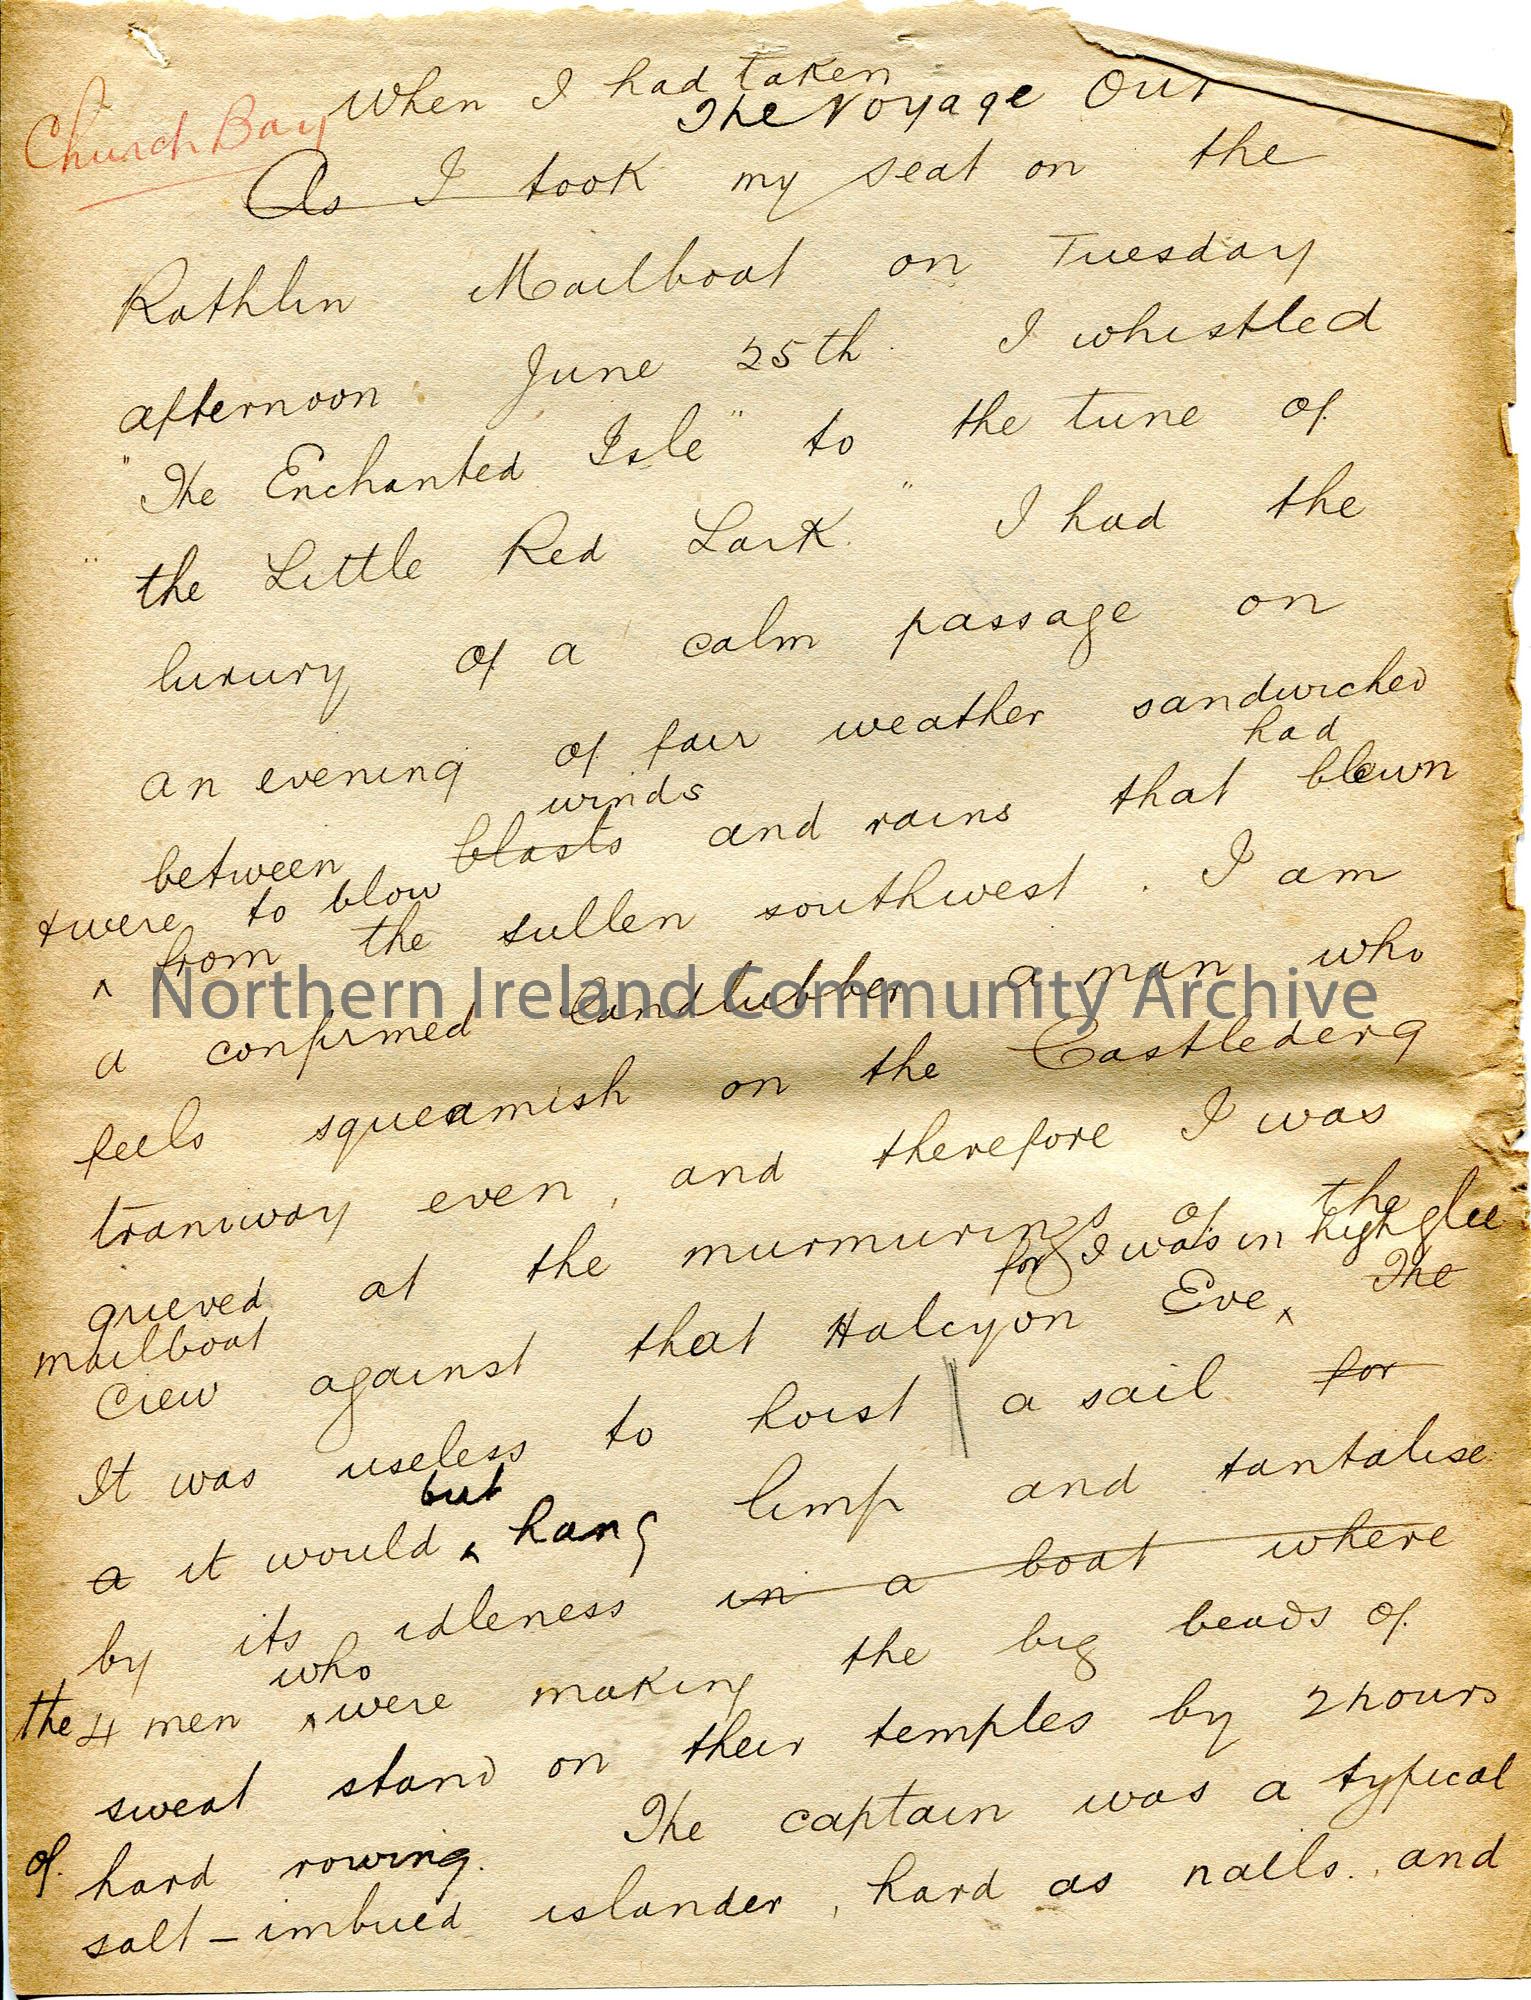 Church Bay
When I had taken
The Voyage Out
As I took my seat on the
Rathlin Mailboat on Tuesday
afternoon June 25th. I whistled
"The Enchanted Isle" to the tune of
"the Little Red Lark." I had the
luxury of a calm passage on
an evening of fair weather sandwiched
winds had
between blasts and rains that blown
& were to blow
^ from the sullen southwest. I am
a confirmed landlubber a man who
feels squeamish on the Castlederg
tramway even, and therefore I was
grieved at the murmurings of the
mailboat for I was in high glee
crew against that Halcyon Eve ^ The
It was useless to hoist a sail for
but
a it would ^ hang limp and tantalise
by its idleness in a boat where
who
the 4 men ^ were making the big beads of
sweat stand on their temples by 2 hours
of hard rowing. The captain was a typical
salt-imbued islander, hard as nails, and
Northern Ireland Community Archive